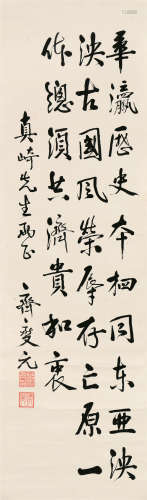 華瀛歷史本相同東亞泱
泱古國風榮辱存亡原一
体總須共濟貴和衷
真崎先生正
齊燮元